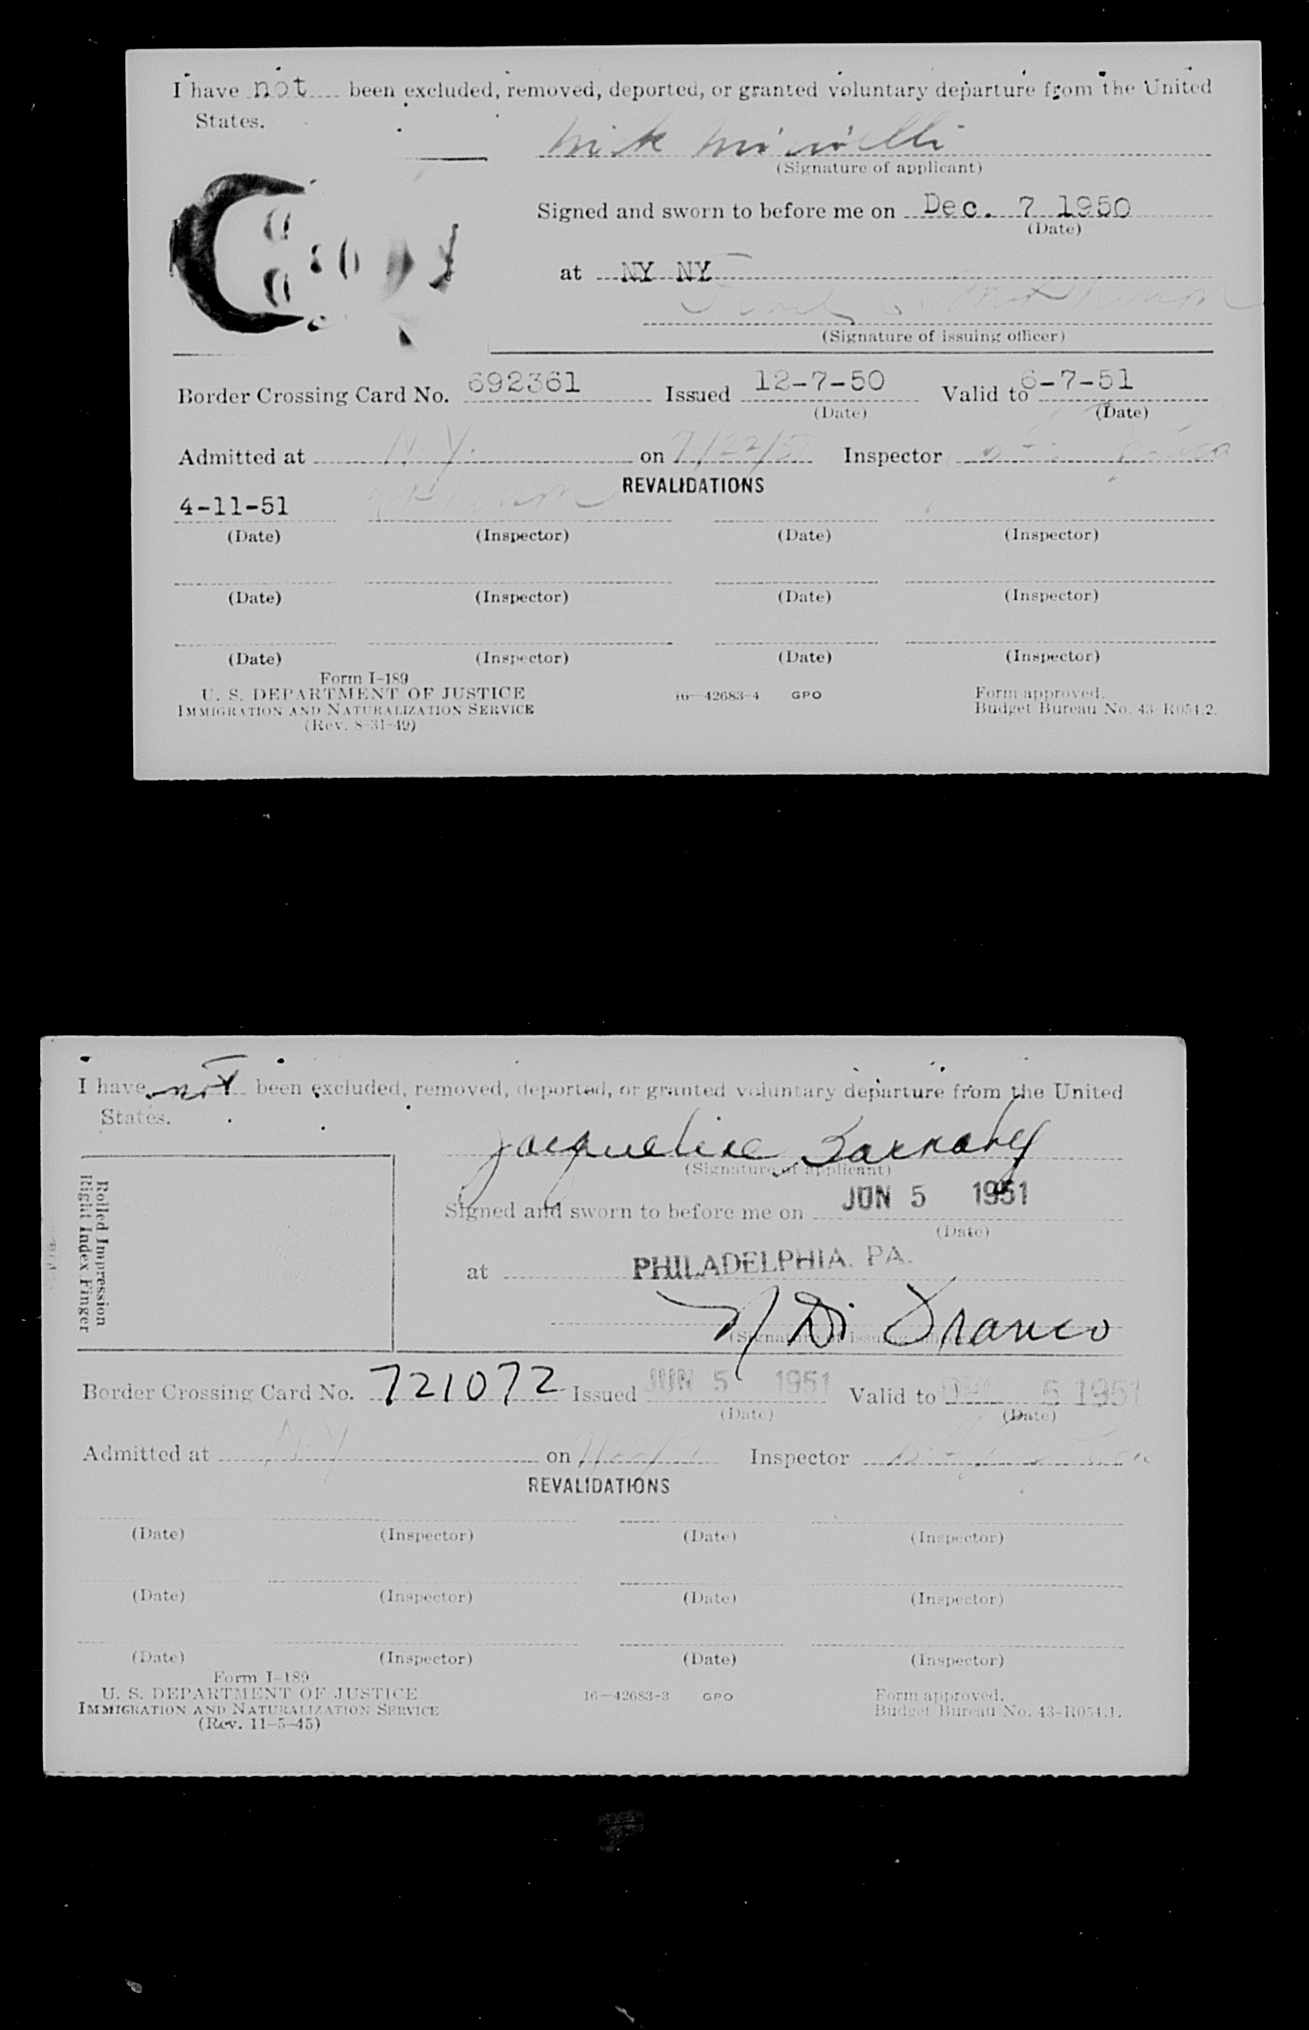 I have not been excluded, removed, deported, or granted voluntary departure from the United
States.
(Signature of applicant)
Signed and sworn to before me on Dec. 7 1950
(Date)
at NY NY
(Signature of issuing officer)
Border Crossing Card No. 692361 Issued 12-7-50 Valid to 6-7-51
(Date) (Date)
Admitted at N.Y. on Inspector
REVALIDATIONS
4-11-51
(Date) (Inspector) (Date) (Inspector)
(Date) (Inspector) (Date) (Inspector)
(Date) (Inspector) (Date) (Inspector)
Form I-189
U. S. DEPARTMENT OF JUSTICE 16—42683-4 GPO Form approved.
IMMIGRATION AND NATURALIZATION SERVICE Budget Bureau No. 43-R054.2.
(Rev. 8-31-49)
I have not been excluded, removed, deported, or granted voluntary departure from the United
States.
Jacqueline Barnaby
(Signature of applicant)
Rolled Impression
Right Index Finger
Signed and sworn to before me on JUN 5 1951
(Date)
at PHILADELPHIA, PA.
N Di Franco
(Signature of issuing officer)
Border Crossing Card No. 721072 Issued JUN 5 1951 Valid to DEC 5 1951
(Date) (Date)
Admitted at NY on Inspector
REVALIDATIONS
(Date) (Inspector) (Date) (Inspector)
(Date) (Inspector) (Date) (Inspector)
(Date) (Inspector) (Date) (Inspector)
Form I-189
U. S. DEPARTMENT OF JUSTICE 16—42683-3 GPO Form approved.
IMMIGRATION AND NATURALIZATION SERVICE Budget Bureau No. 43-R054.1.
(Rev. 11-5-45)